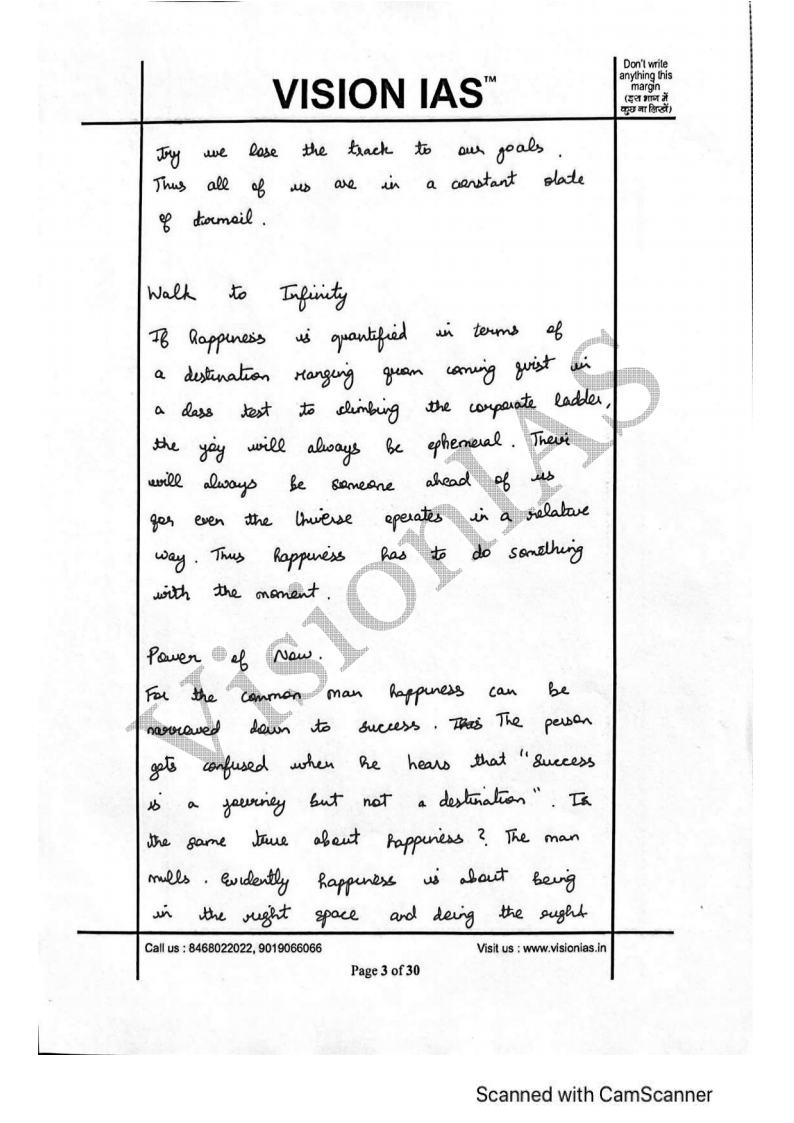 VISION IAS™
Don't write
anything this
margin
(इस भाग में
कुछ ना लिखें)
try we lose the track to our goals.
Thus all of us are in a constant state
of turmoil.
Walk to Infinity
If happiness is quantified in terms of
a destination ranging from coming first in
a class test to climbing the corporate ladder,
the joy will always be ephemeral. There
will always be someone ahead of us
for even the Universe operates in a relative
way. Thus happiness has to do something
with the moment.
Power of Now.
For the common man happiness can be
narrowed down to success. This The person
gets confused when he hears that "Success
is a journey but not a destination". Is
the same true about happiness? The man
mulls. Evidently happiness is about being
in the right space and doing the right
VisionIAS
Call us : 8468022022, 9019066066
Visit us : www.visionias.in
Page 3 of 30
Scanned with CamScanner